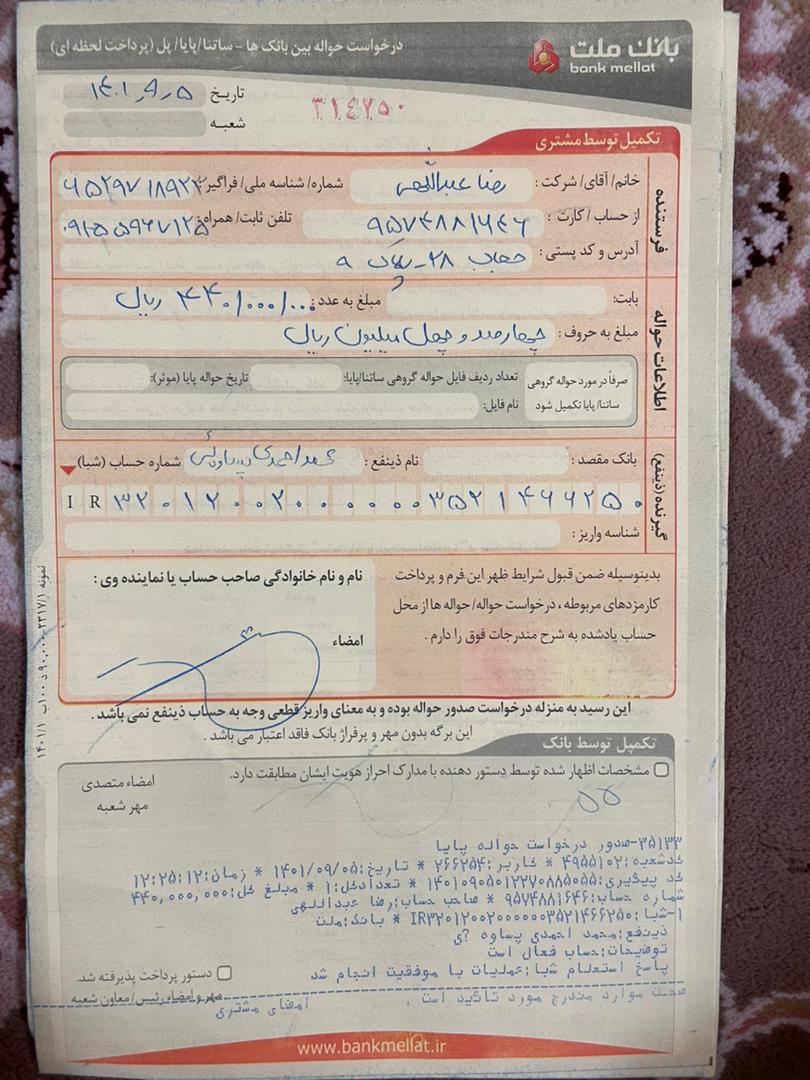 درخواست حواله بین بانک ها - ساتنا/پایا/پل (پرداخت لحظه ای)
بانک ملت
bank mellat
تاریخ ۱۴۰۱٫۹٫۰۵
شعبه
۳۱٤۷۵۰
تکمیل توسط مشتری
فرستنده
خانم/آقای/شرکت: رضا عبداللهی شماره/شناسه ملی/فراگیر:
از حساب/کارت: ۹۵۷۴۸۸۱۶۴۶ تلفن ثابت/همراه:
آدرس و کد پستی: ۲۸ - پلاک ۹
اطلاعات حواله
بابت: مبلغ به عدد: ۴۴۰/۰۰۰/۰۰۰ ریال
مبلغ به حروف: چهارصد و چهل میلیون ریال
صرفاً در مورد حواله گروهی ساتنا/پایا تکمیل شود
تعداد ردیف فایل حواله گروهی ساتنا/پایا: تاریخ حواله پایا (موثر):
نام فایل:
گیرنده (ذینفع)
بانک مقصد: نام ذینفع: محمد احمدی پساوه ئی شماره حساب (شبا)
IR ۳۲۰۱۲۰۰۲۰۰۰۰۰۰۳۵۲۱۴۶۶۲۵۰
شناسه واریز:
بدینوسیله ضمن قبول شرایط ظهر این فرم و پرداخت
کارمزدهای مربوطه، درخواست حواله/حواله ها از محل
حساب یادشده به شرح مندرجات فوق را دارم.
نام و نام خانوادگی صاحب حساب یا نماینده وی:
امضاء
این رسید به منزله درخواست صدور حواله بوده و به معنای واریز قطعی وجه به حساب ذینفع نمی باشد.
این برگه بدون مهر و پرفراژ بانک فاقد اعتبار می باشد.
تکمیل توسط بانک
مشخصات اظهار شده توسط دستور دهنده با مدارک احراز هویت ایشان مطابقت دارد.
امضاء متصدی
مهر شعبه
۳۵۱۳۳-صدور درخواست حواله پایا
کدشعبه:۴۹۵۵۱۰۲ * کاربر:۲۶۶۲۵۴ * تاریخ:۱۴۰۱/۰۹/۰۵ * زمان:۱۲:۲۵:۱۲
کد پیگیری:۱۴۰۱۰۹۰۵۰۱۲۲۷۰۸۸۵۰۵۵ * تعدادکل:۱ * مبلغ کل:۴۴۰,۰۰۰,۰۰۰
شماره حساب:۹۵۷۴۸۸۱۶۴۶ * صاحب حساب:رضا عبداللهی
۱-شبا:IR۳۲۰۱۲۰۰۲۰۰۰۰۰۰۳۵۲۱۴۶۶۲۵۰ * بانک:ملت
ذینفع:محمد احمدی پساوه ?ی
توضیحات:حساب فعال است
پاسخ استعلام شبا:عملیات با موفقیت انجام شد
دستور پرداخت پذیرفته شد.
مهر و امضاء رئیس/معاون شعبه
صحت موارد مندرج مورد تائید است . امضای مشتری
www.bankmellat.ir